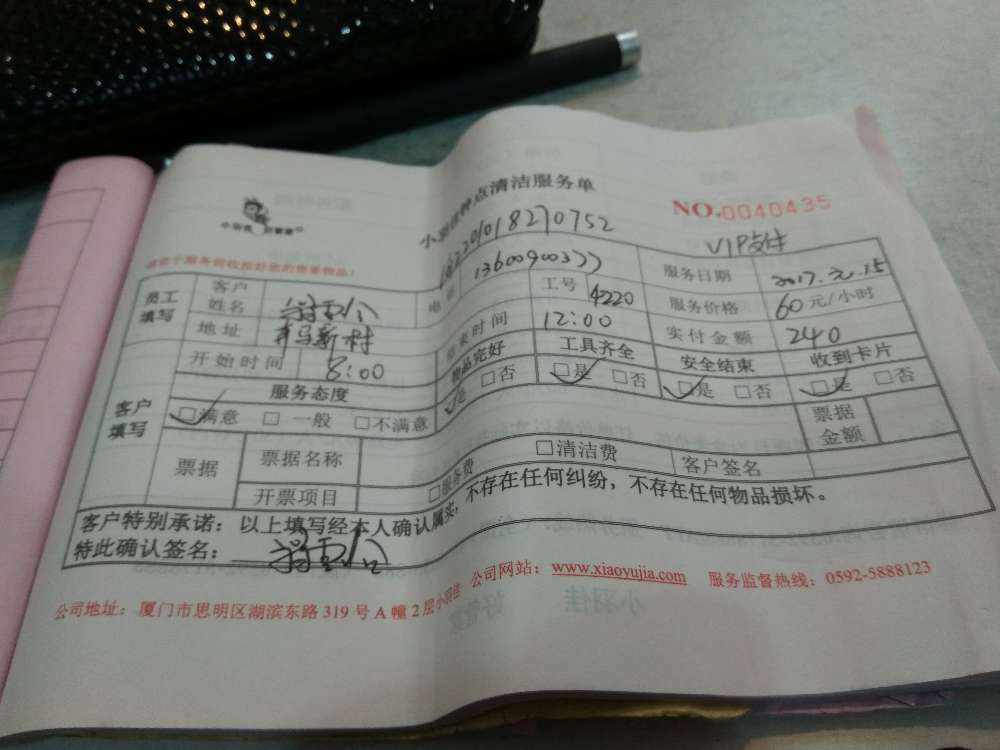 小羽佳 好管家
小羽佳钟点清洁服务单
NO.0040435
VIP支付
请您于服务前收拾好您的贵重物品!
员工填写 客户姓名 电
工号 4220
服务日期
地址
服务价格 60元/小时
开始时间 8:00 结束时间 12:00 实付金额 240
客户填写 服务态度 物品完好 工具齐全 安全结束 收到卡片
□满意 □一般 □不满意 是 □否 □是 □否 □是 □否 □是 □否
票据 票据名称 □清洁费 客户签名 票据金额
开票项目 □服务费
客户特别承诺:以上填写经本人确认属实,不存在任何纠纷,不存在任何物品损坏。
特此确认签名:
公司地址:厦门市思明区湖滨东路319号A幢2层小羽佳 公司网站:www.xiaoyujia.com 服务监督热线:0592-5888123